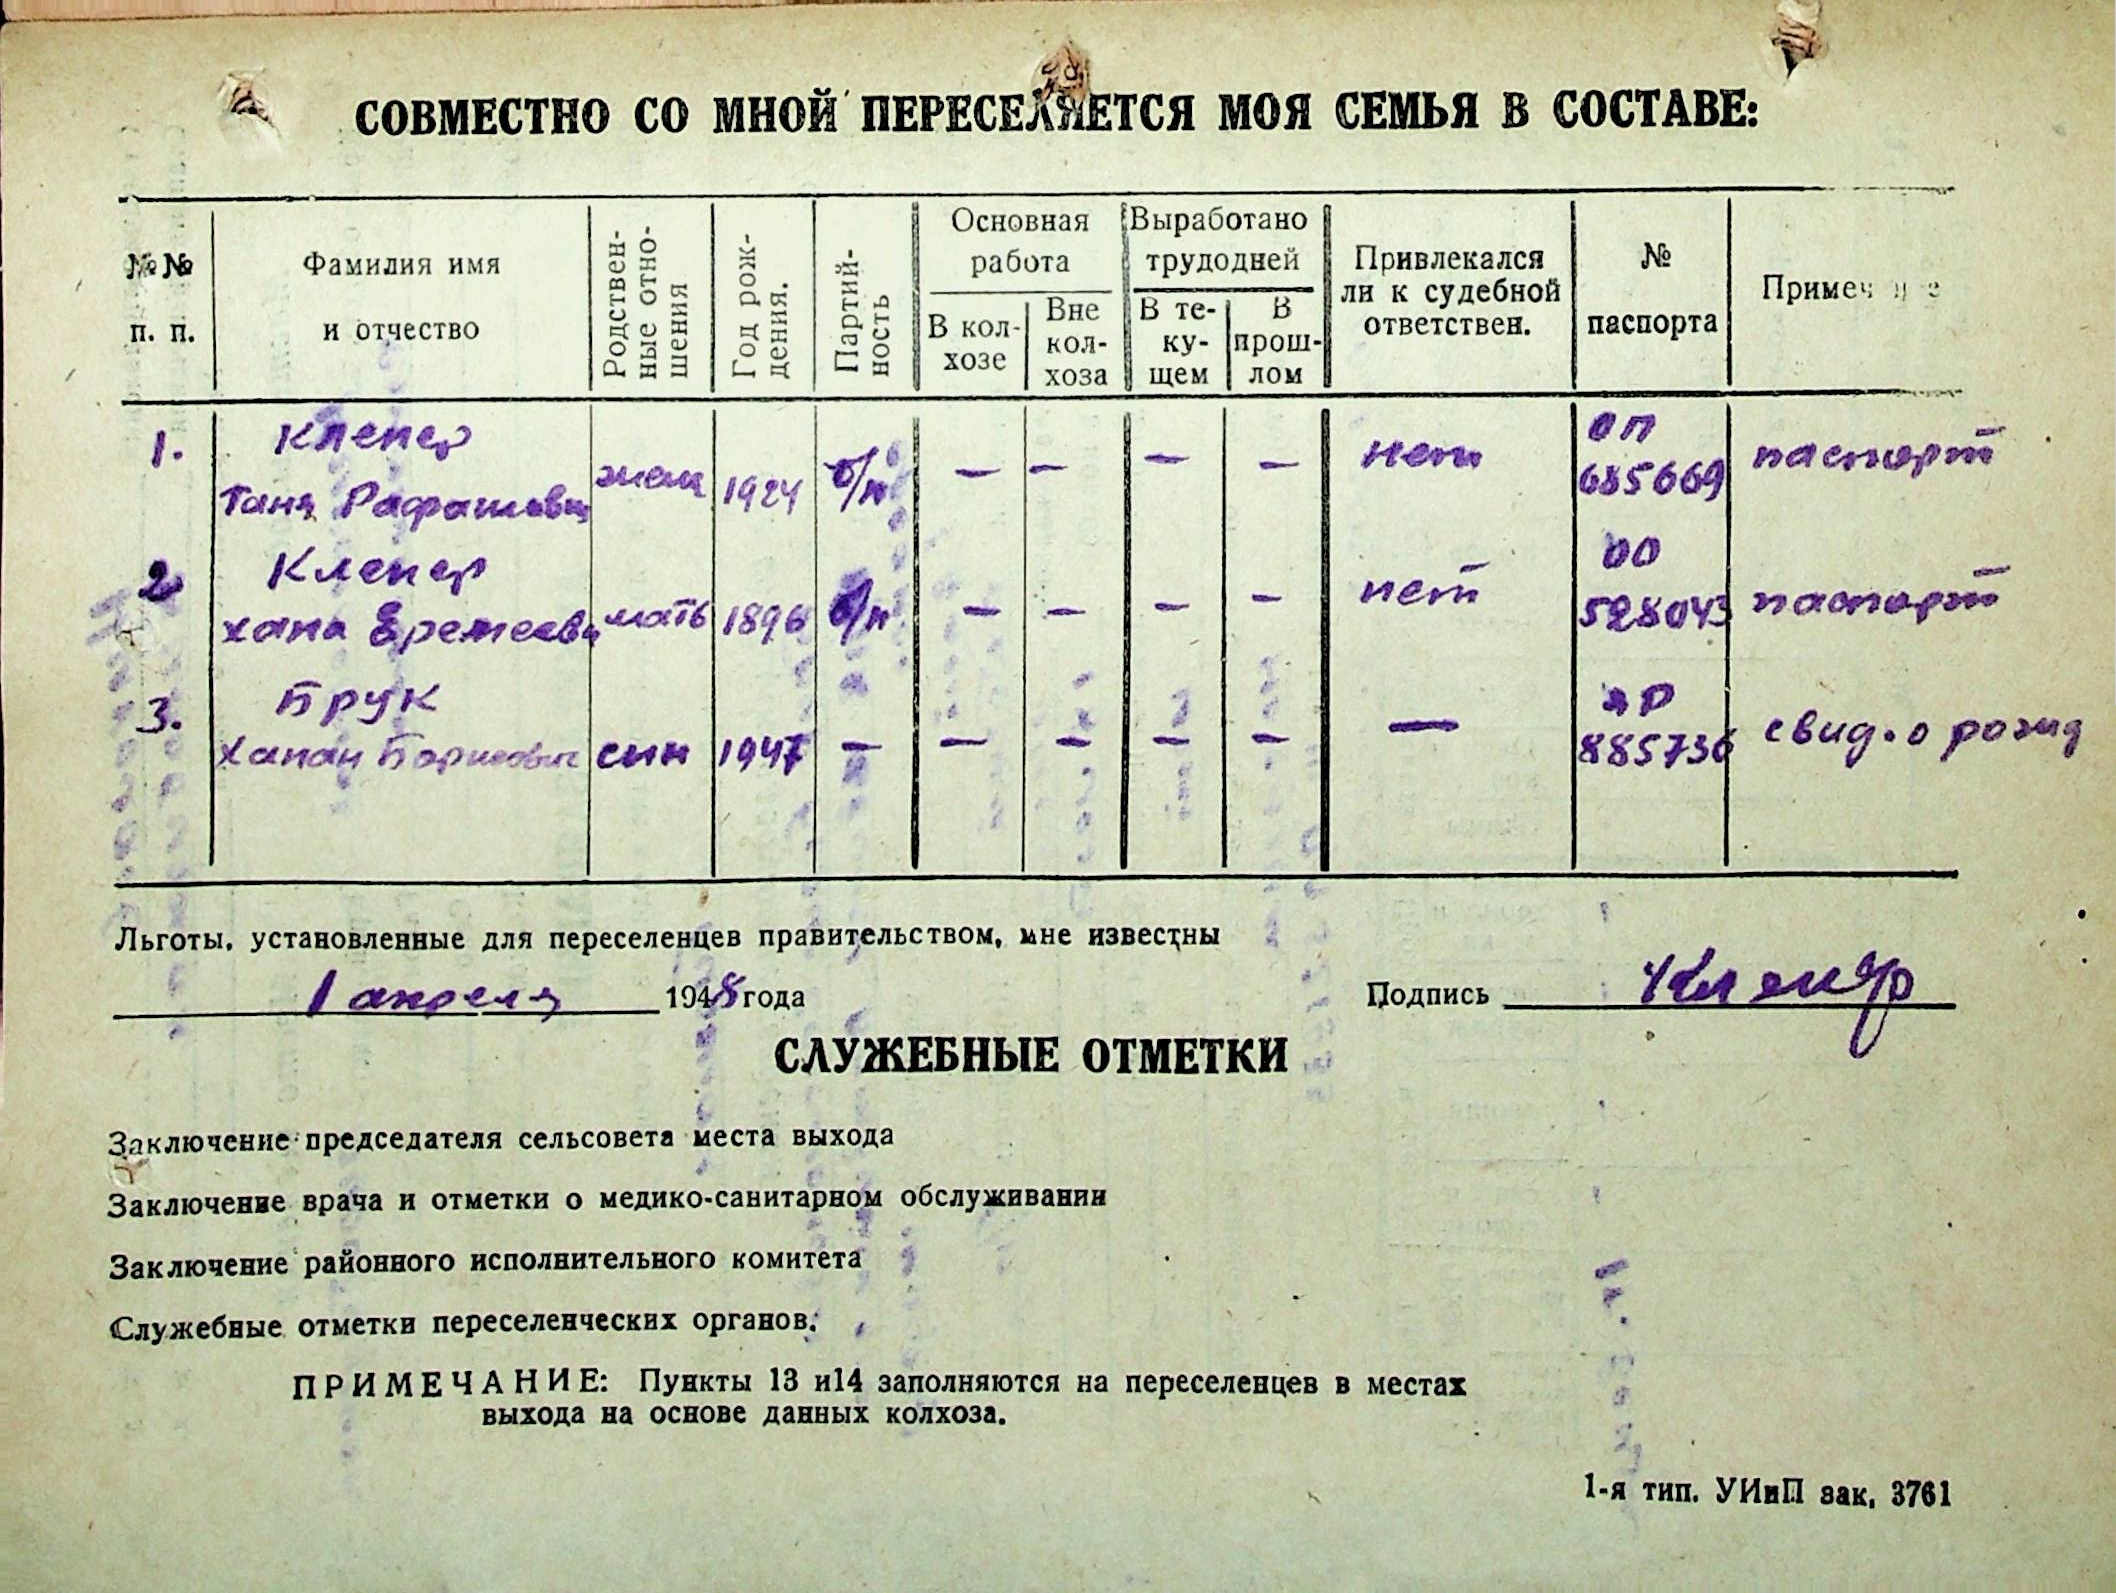 СОВМЕСТНО СО МНОЙ ПЕРЕСЕЛЯЕТСЯ МОЯ СЕМЬЯ В СОСТАВЕ:
№№ п. п.
Фамилия имя и отчество
Родствен-ные отно-шения
Год рож-дения.
Партий-ность
Основная работа
В кол-хозе
Вне кол-хоза
Выработано трудодней
В те-ку-щем
В прош-лом
Привлекался ли к судебной ответствен.
№ паспорта
1. Клепер
Таня жена 1924 б/п — — — — нет ОП 685669 паспорт
2 Клепер
Хана мать 1896 б/п — — — — нет ОО 528043 паспорт
3. Брук
Хапан Борисович сын 1947 — — — — — — ЯР 885736 свид. о рожд
Льготы, установленные для переселенцев правительством, мне известны
1 апреля 1948 года
Подпись Клепер
СЛУЖЕБНЫЕ ОТМЕТКИ
Заключение председателя сельсовета места выхода
Заключение врача и отметки о медико-санитарном обслуживании
Заключение районного исполнительного комитета
Служебные отметки переселенческих органов:
ПРИМЕЧАНИЕ: Пункты 13 и14 заполняются на переселенцев в местах
выхода на основе данных колхоза.
1-я тип. УИиП зак, 3761